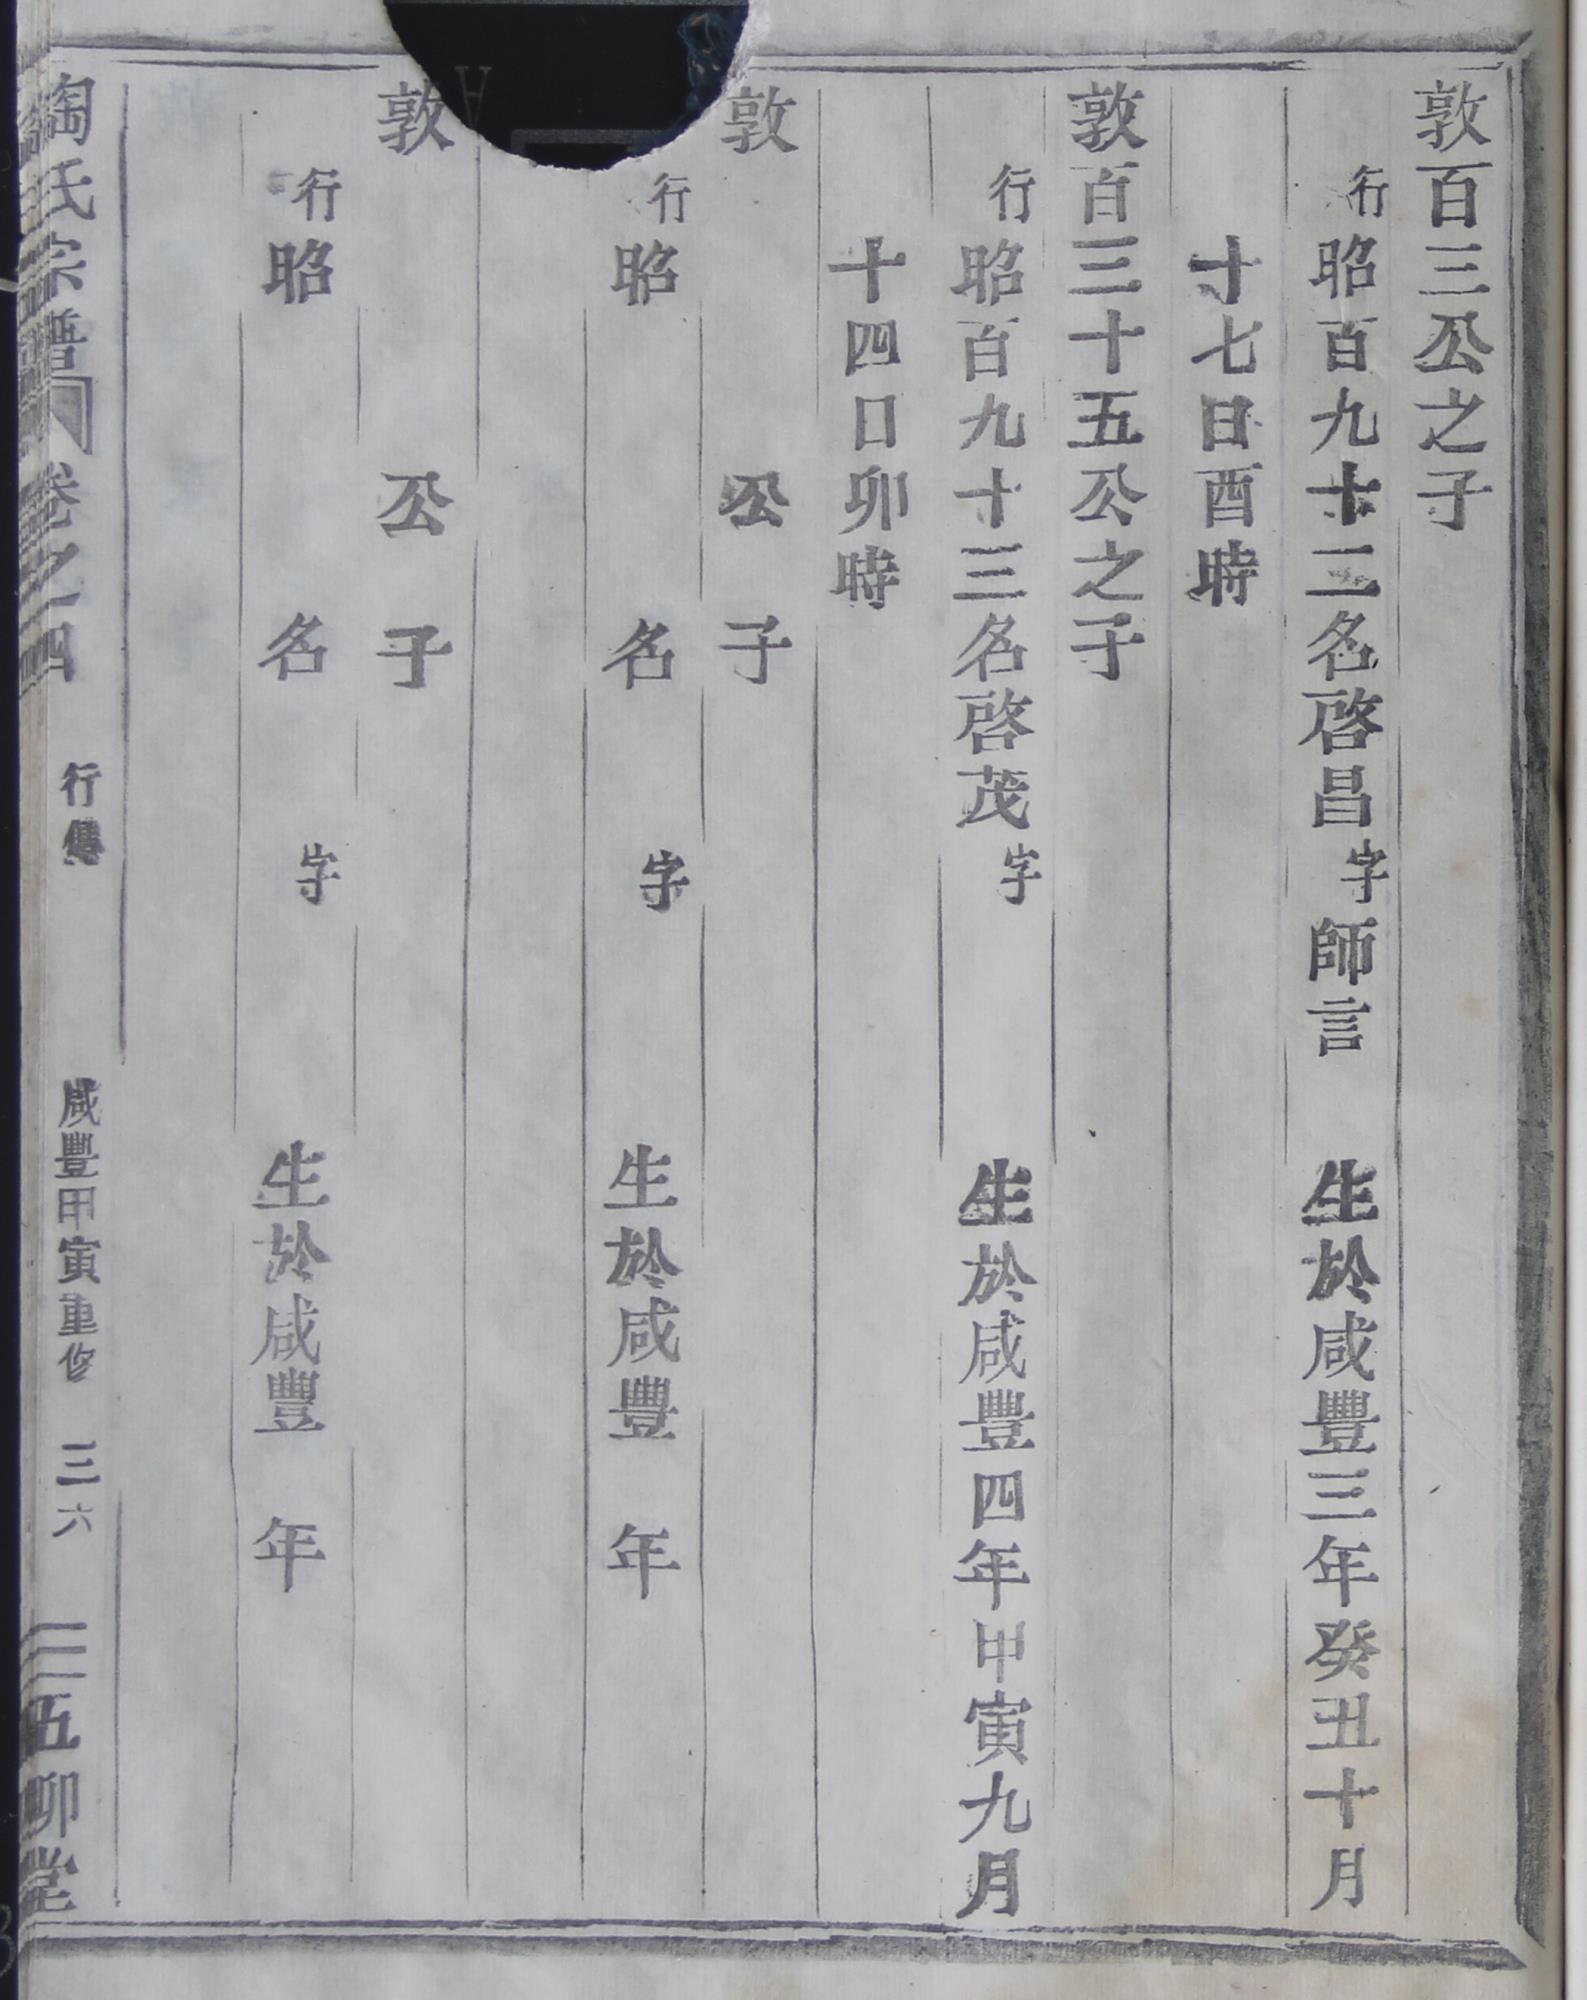 敦百三公之子
行昭百九十二名啓昌字師言 生於咸豐三年癸丑十月
十七日酉時
敦百三十五公之子
行昭百九十三名啓茂字 生於咸豐四年甲寅九月
十四日卯時
敦 公 子
行昭 名 字 生於咸豐 年
敦 公 子
行昭 名 字 生於咸豐 年
陶氏宗譜 卷之四 行傳 咸豐甲寅重修 三六 五柳堂